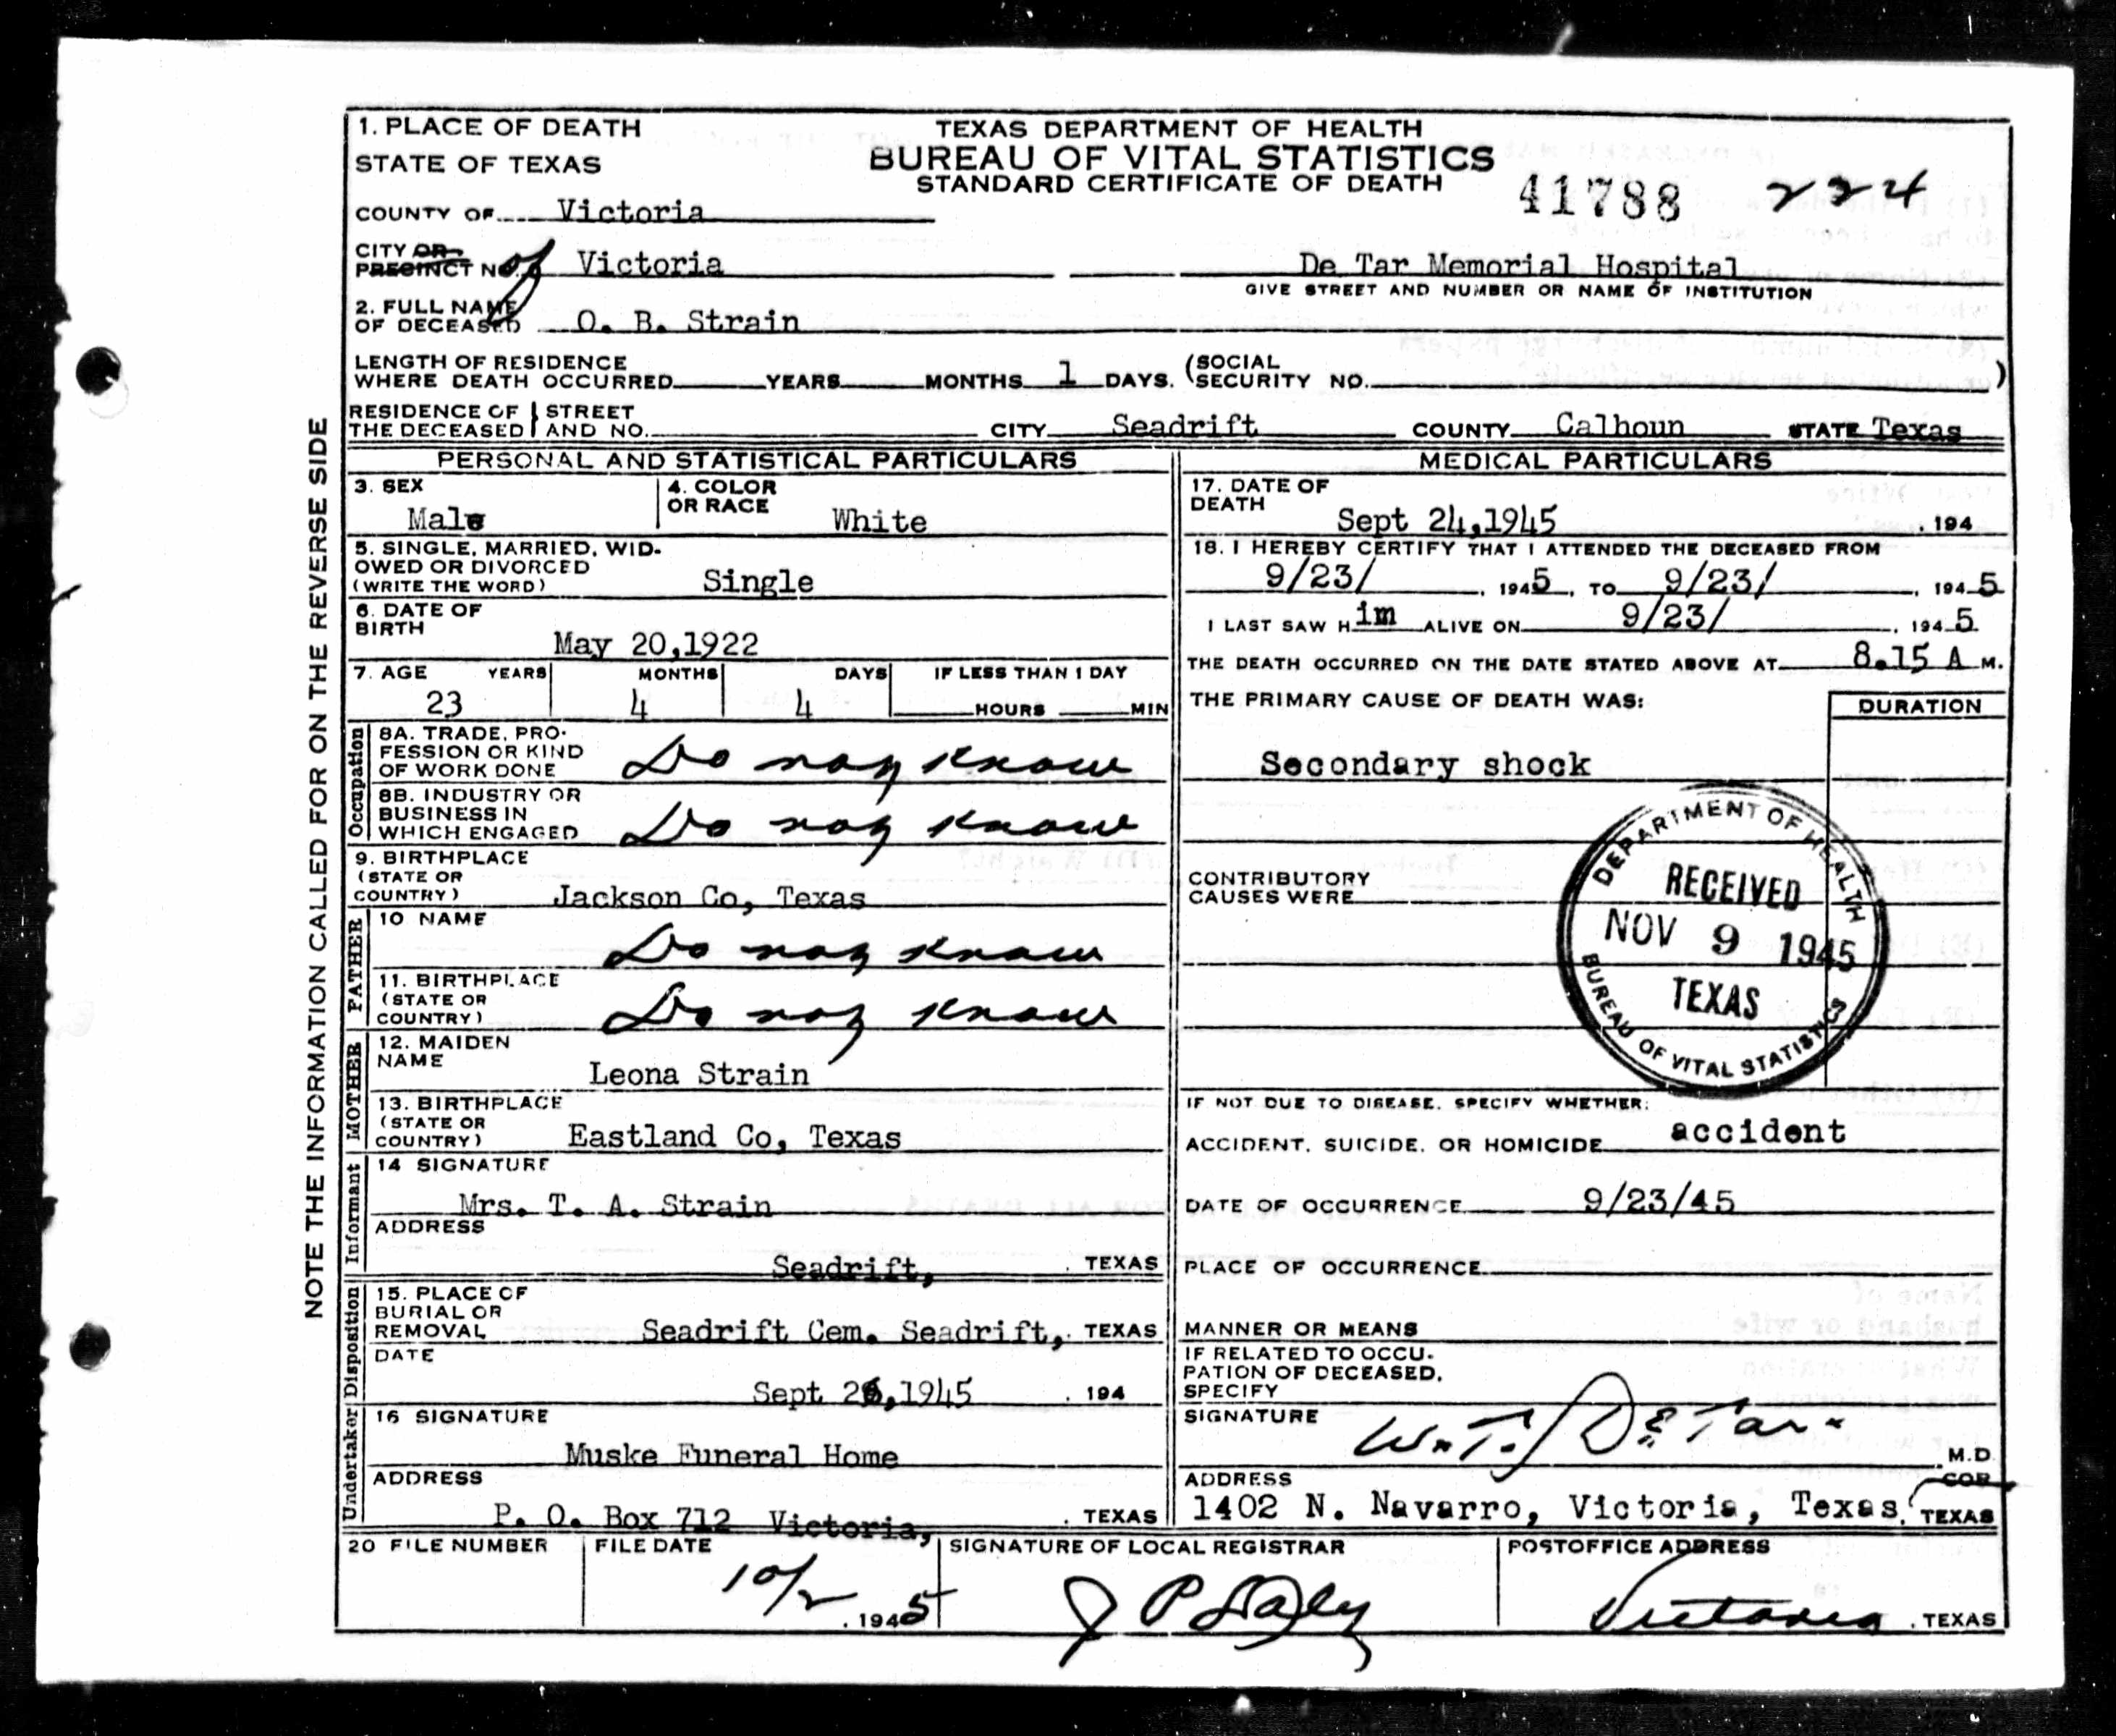 1. PLACE OF DEATH
STATE OF TEXAS
TEXAS DEPARTMENT OF HEALTH
BUREAU OF VITAL STATISTICS
STANDARD CERTIFICATE OF DEATH
41788 224
COUNTY OF Victoria
CITY OR PRECINCT NO. of Victoria
De Tar Memorial Hospital
GIVE STREET AND NUMBER OR NAME OF INSTITUTION
2. FULL NAME OF DECEASED O. B. Strain
LENGTH OF RESIDENCE
WHERE DEATH OCCURRED YEARS MONTHS 1 DAYS. (SOCIAL SECURITY NO. )
RESIDENCE OF THE DECEASED STREET AND NO. CITY Seadrift COUNTY Calhoun STATE Texas
NOTE THE INFORMATION CALLED FOR ON THE REVERSE SIDE
PERSONAL AND STATISTICAL PARTICULARS
3. SEX Male
4. COLOR OR RACE White
5. SINGLE, MARRIED, WID-
OWED OR DIVORCED
(WRITE THE WORD) Single
6. DATE OF BIRTH May 20,1922
7. AGE YEARS MONTHS DAYS IF LESS THAN 1 DAY
23 4 4 HOURS MIN
Occupation
8A. TRADE, PRO-
FESSION OR KIND
OF WORK DONE Do not know
8B. INDUSTRY OR
BUSINESS IN
WHICH ENGAGED Do not know
9. BIRTHPLACE
(STATE OR
COUNTRY) Jackson Co, Texas
FATHER
10 NAME Do not know
11. BIRTHPLACE
(STATE OR
COUNTRY) Do not know
MOTHER
12. MAIDEN
NAME Leona Strain
13. BIRTHPLACE
(STATE OR
COUNTRY) Eastland Co, Texas
Informant
14 SIGNATURE
Mrs. T. A. Strain
ADDRESS
Seadrift, TEXAS
Disposition
15. PLACE OF
BURIAL OR
REMOVAL Seadrift Cem. Seadrift, TEXAS
DATE
Sept 26,1945 , 194
Undertaker
16 SIGNATURE
Muske Funeral Home
ADDRESS
P. O. Box 712 Victoria, TEXAS
MEDICAL PARTICULARS
17. DATE OF
DEATH Sept 24,1945 , 194
18. I HEREBY CERTIFY THAT I ATTENDED THE DECEASED FROM
9/23/ , 1945, TO 9/23/ , 1945
I LAST SAW Him ALIVE ON 9/23/ , 1945
THE DEATH OCCURRED ON THE DATE STATED ABOVE AT 8.15 A M.
THE PRIMARY CAUSE OF DEATH WAS: DURATION
Secondary shock
CONTRIBUTORY
CAUSES WERE
DEPARTMENT OF HEALTH
RECEIVED
NOV 9 1945
TEXAS
BUREAU OF VITAL STATISTICS
IF NOT DUE TO DISEASE, SPECIFY WHETHER:
ACCIDENT, SUICIDE, OR HOMICIDE accident
DATE OF OCCURRENCE 9/23/45
PLACE OF OCCURRENCE
MANNER OR MEANS
IF RELATED TO OCCU-
PATION OF DECEASED,
SPECIFY
SIGNATURE W.T. DeTar M.D.
ADDRESS COR
1402 N. Navarro, Victoria, Texas, TEXAS
20 FILE NUMBER
FILE DATE 10/2 , 1945
SIGNATURE OF LOCAL REGISTRAR
J P Daley
POSTOFFICE ADDRESS
Victoria , TEXAS